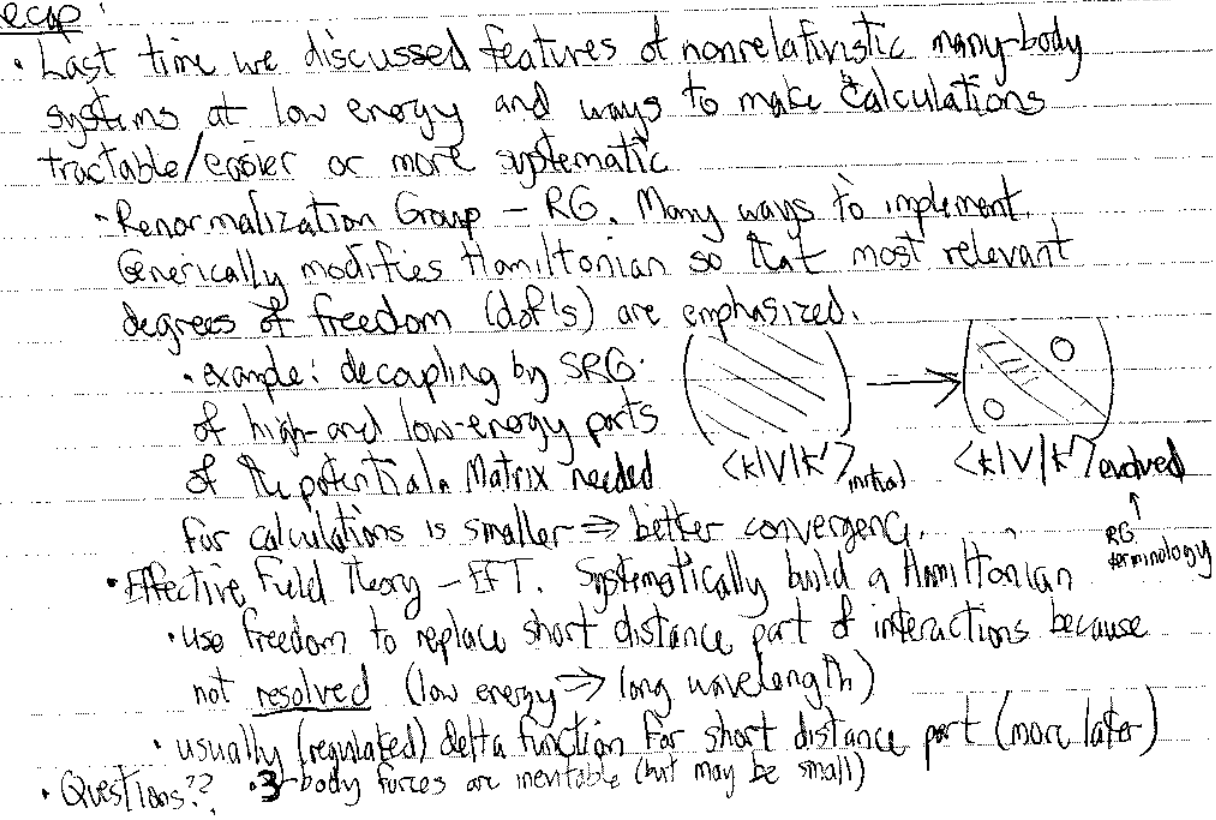 ecap:
• Last time we discussed features of nonrelativistic many-body
systems at low energy and ways to make calculations
tractable/easier or more systematic
• Renormalization Group – RG. Many ways to implement.
Generically modifies Hamiltonian so that most relevant
degrees of freedom (dof's) are emphasized.
• example: decoupling by SRG
of high- and low-energy parts
of the potential. Matrix needed
for calculations is smaller ⇒ better convergence.
<k|V|k'>initial
<k|V|k'>evolved
↑
RG
terminology
• Effective Field Theory – EFT. Systematically build a Hamiltonian
• use freedom to replace short distance part of interactions because
not resolved (low energy ⇒ long wavelength)
• usually (regulated) delta function for short distance part (more later)
• 3-body forces are inevitable (but may be small)
• Questions??